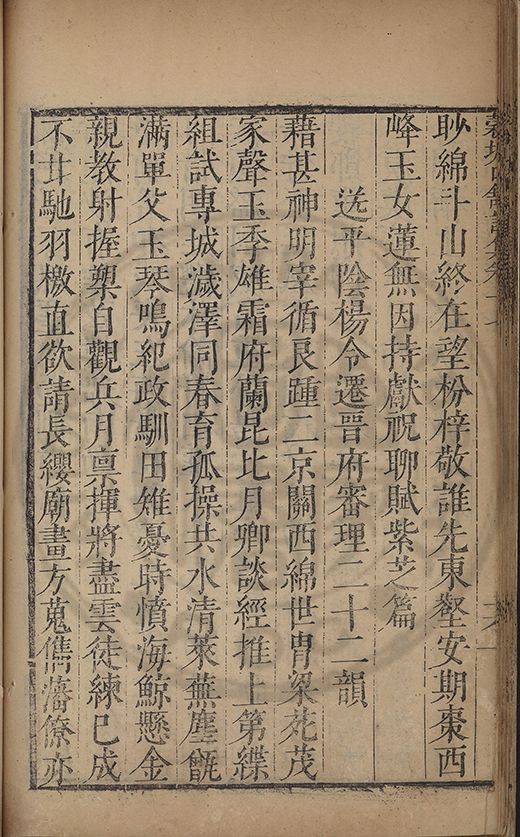 眇綿斗山終在望枌梓敬誰先東壑安期棗西
峰玉女蓮無因持獻祝聊賦紫芝篇
送平陰楊令遷晉府審理二十二韻
藉甚神明宰循良踵二京關西綿世胄梁苑茂
家聲玉季雄霜府蘭昆比月卿談經推上第緤
組試專城濊澤同春育孤操共水清萊蕪塵甑
滿單父玉琴鳴紀政馴田雉憂時憤海鯨懸金
親教射握槊自觀兵月禀揮將盡雲徒練已成
不甘馳羽檄直欲請長纓廟畫方蒐儁藩僚亦